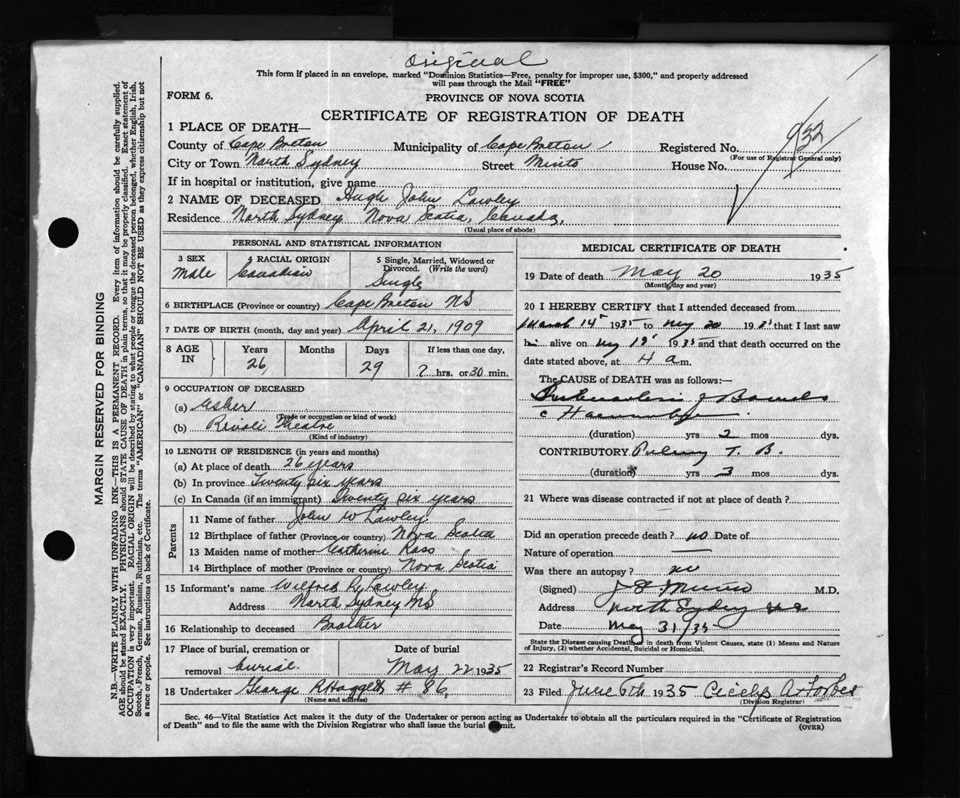 Original
This form if placed in an envelope, marked "Dominion Statistics—Free, penalty for improper use, $300," and properly addressed
will pass through the Mail "FREE"
FORM 6.
PROVINCE OF NOVA SCOTIA
CERTIFICATE OF REGISTRATION OF DEATH
1 PLACE OF DEATH—
County of Cape Breton Municipality of Cape Breton Registered No. 932
(For use of Registrar General only)
City or Town North Sydney Street Minto House No.
If in hospital or institution, give name
2 NAME OF DECEASED Hugh John Lawley
Residence North Sydney Nova Scotia, Canada,
(Usual place of abode)
PERSONAL AND STATISTICAL INFORMATION
3 SEX RACIAL ORIGIN 5 Single, Married, Widowed or
Divorced. (Write the word)
Male Canadian Single
6 BIRTHPLACE (Province or country) Cape Breton NS
7 DATE OF BIRTH (month, day and year) April 21, 1909
8 AGE IN Years Months Days If less than one day,
26 29 ? hrs. or 30 min.
9 OCCUPATION OF DECEASED
(a) Usher
(Trade or occupation or kind of work)
(b) Rivoli Theatre
(Kind of industry)
10 LENGTH OF RESIDENCE (in years and months)
(a) At place of death 26 years
(b) In province Twenty six years
(c) In Canada (if an immigrant) Twenty six years
Parents
11 Name of father John W Lawley
12 Birthplace of father (Province or country) Nova Scotia
13 Maiden name of mother Catherine Ross
14 Birthplace of mother (Province or country) Nova Scotia
15 Informant's name Wilfred R Lawley
Address North Sydney NS
16 Relationship to deceased Brother
17 Place of burial, cremation or Date of burial
removal burial. May 22 1935
18 Undertaker George R Haggett # 86.
(Name and address)
MEDICAL CERTIFICATE OF DEATH
19 Date of death May 20 1935
(Month, day and year)
20 I HEREBY CERTIFY that I attended deceased from
March 14 1935 to May 20 193 that I last saw
him alive on May 19 1935 and that death occurred on the
date stated above, at 4 a m.
The CAUSE OF DEATH was as follows:—
(duration) yrs 2 mos dys.
CONTRIBUTORY T. B.
(duration) yrs 3 mos dys.
21 Where was disease contracted if not at place of death?
Did an operation precede death? no Date of
Nature of operation
Was there an autopsy? no
(Signed) M.D.
Address North Sydney
Date May 31/35
State the Disease causing Death, or in death from Violent Causes, state (1) Means and Nature
of Injury, (2) whether Accidental, Suicidal or Homicidal.
22 Registrar's Record Number
23 Filed June 6th 1935 A. Forbes
(Division Registrar)
Sec. 46—Vital Statistics Act makes it the duty of the Undertaker or person acting as Undertaker to obtain all the particulars required in the "Certificate of Registration
of Death" and to file the same with the Division Registrar who shall issue the burial permit.
(OVER)
MARGIN RESERVED FOR BINDING
N.B.—WRITE PLAINLY WITH UNFADING INK—THIS IS A PERMANENT RECORD. Every item of information should be carefully supplied.
AGE should be stated EXACTLY. PHYSICIANS should STATE CAUSE OF DEATH in plain terms, so that it may be properly classified. Exact statement of
OCCUPATION is very important. RACIAL ORIGIN will be described by stating to what people or tongue the deceased person belonged, whether English, Irish,
Scotch, French, German, Russian, Ruthenian, etc. The terms "AMERICAN" or "CANADIAN" SHOULD NOT BE USED as they express citizenship but not
a race or people. See instructions on back of Certificate.